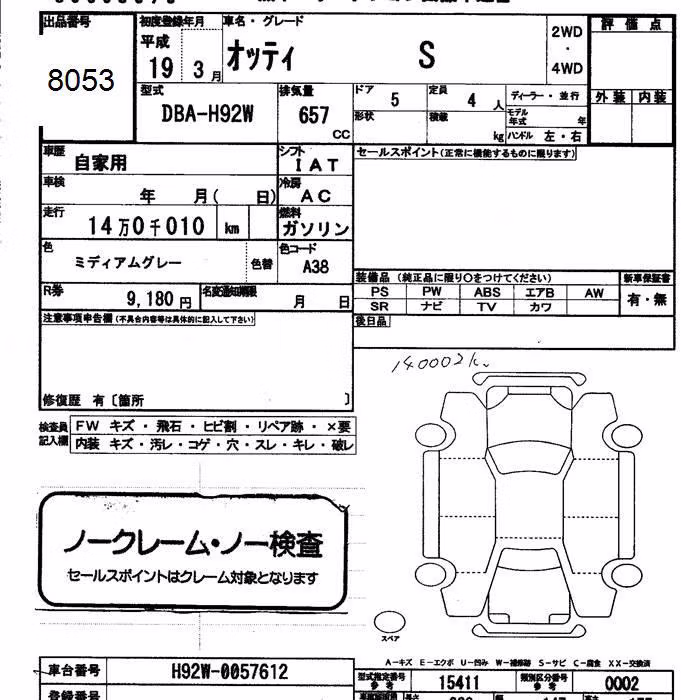 出品番号 初度登録年月 車名・グレード 2WD・4WD 評価点
8053 平成 19 3月 オッティ S
外装 内装
型式 DBA-H92W 排気量 657 CC ドア 5 定員 4人 ディーラー・並行
形状 積載 kg モデル年式 年
ハンドル 左・右
車歴 自家用 シフト IAT セールスポイント(正常に機能するものに限ります)
車検 年 月( 日) 冷房 AC
走行 14万0千010 km 燃料 ガソリン
色 ミディアムグレー 色替 色コード A38
装備品 (純正品に限り〇をつけてください) 新車保証書
R券 9,180円 名変通知期限 月 日 PS PW ABS エアB AW 有・無
SR ナビ TV カワ
注意事項申告欄(不具合内容等は具体的に記入して下さい) 後日品
140002k
修復歴 有〔箇所 〕
検査員記入欄 FW キズ・飛石・ヒビ割・リペア跡・×要
内装 キズ・汚レ・コゲ・穴・スレ・キレ・破レ
ノークレーム・ノー検査
セールスポイントはクレーム対象となります
スペア
A-キズ E-エクボ U-凹み W-補修跡 S-サビ C-腐食 XX-交換済
車台番号 H92W-0057612 型式指定番号 参考 15411 類別区分番号 参考 0002
登録番号